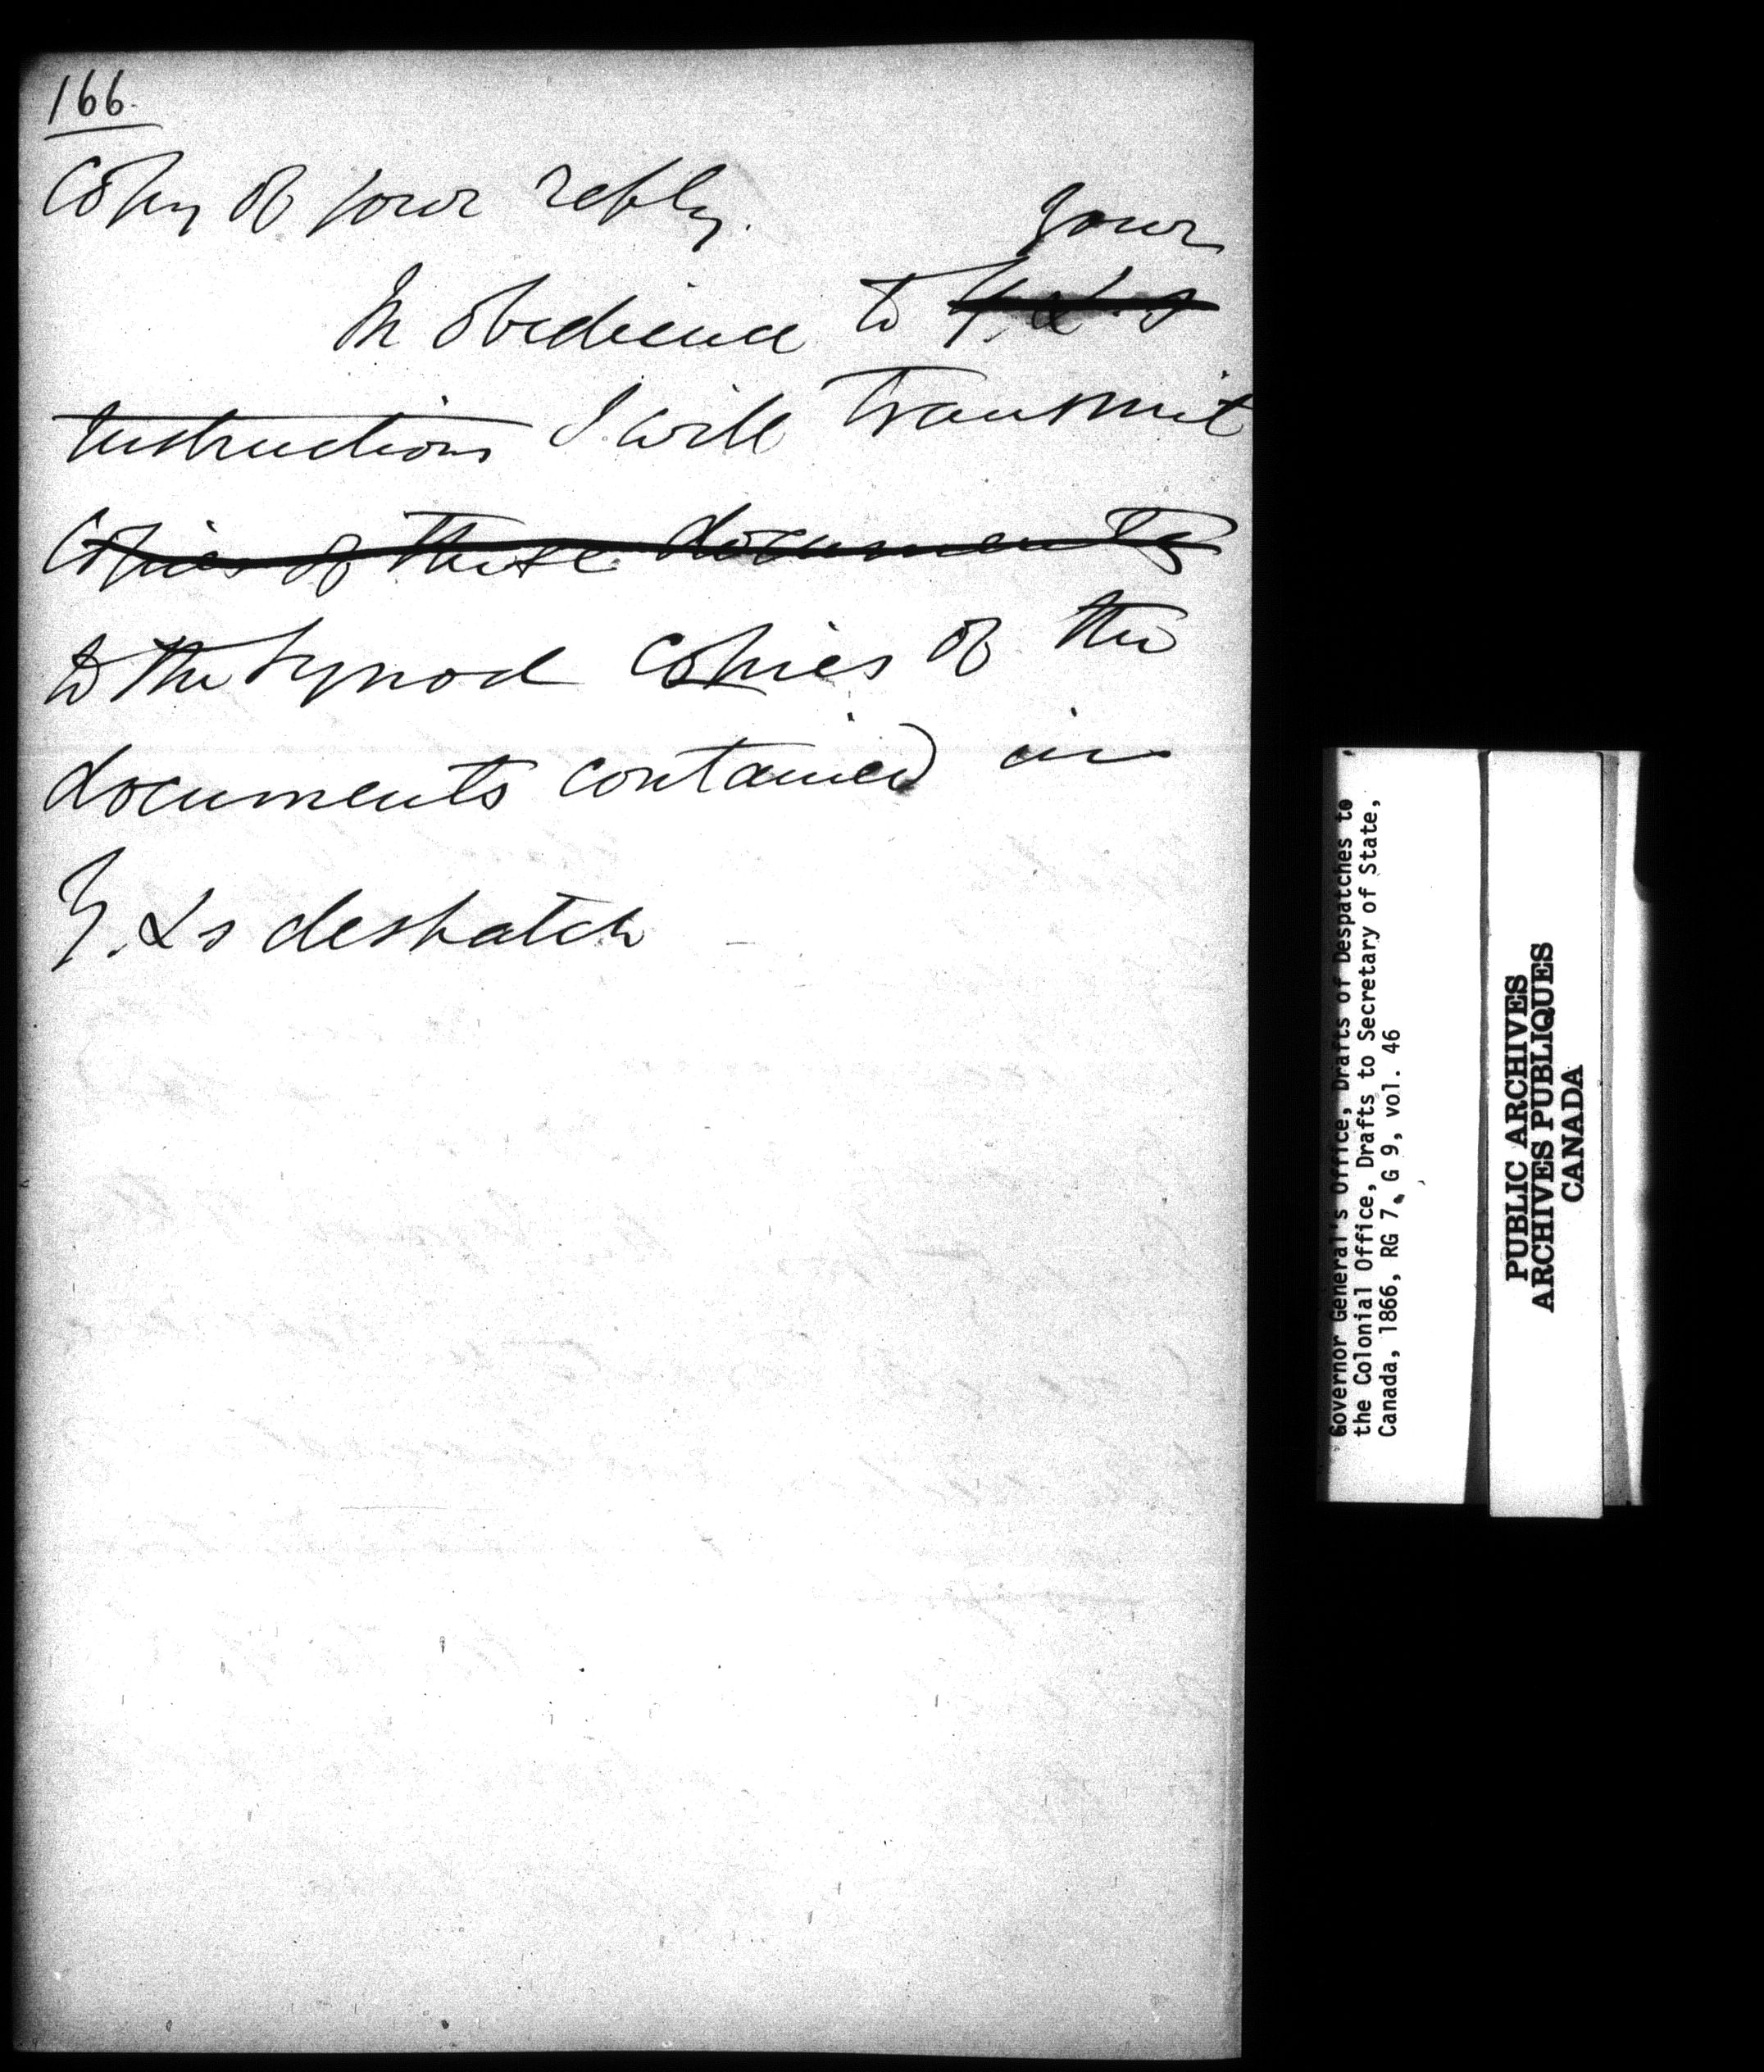 166.
Copy of your reply.
your
In obedience to Y. L's
instructions I will transmit
Copies of these documents
to the Synod Copies of the
documents contained in
Y. Ls despatch
Governor General's Office, Drafts of Despatches to
the Colonial Office, Drafts to Secretary of State,
Canada, 1866, RG 7, G 9, vol. 46
PUBLIC ARCHIVES
ARCHIVES PUBLIQUES
CANADA